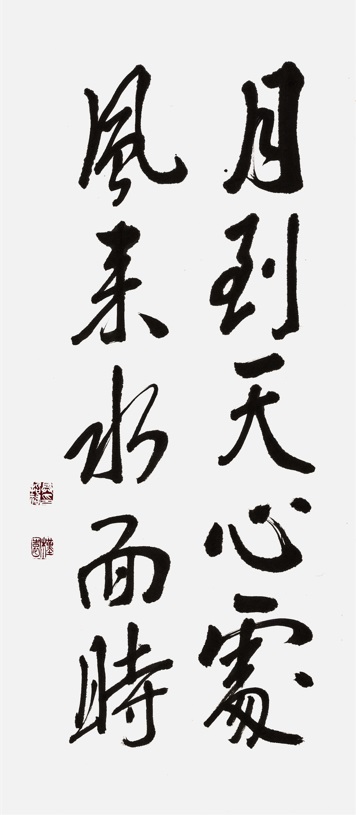 月到天心處
風来水面時